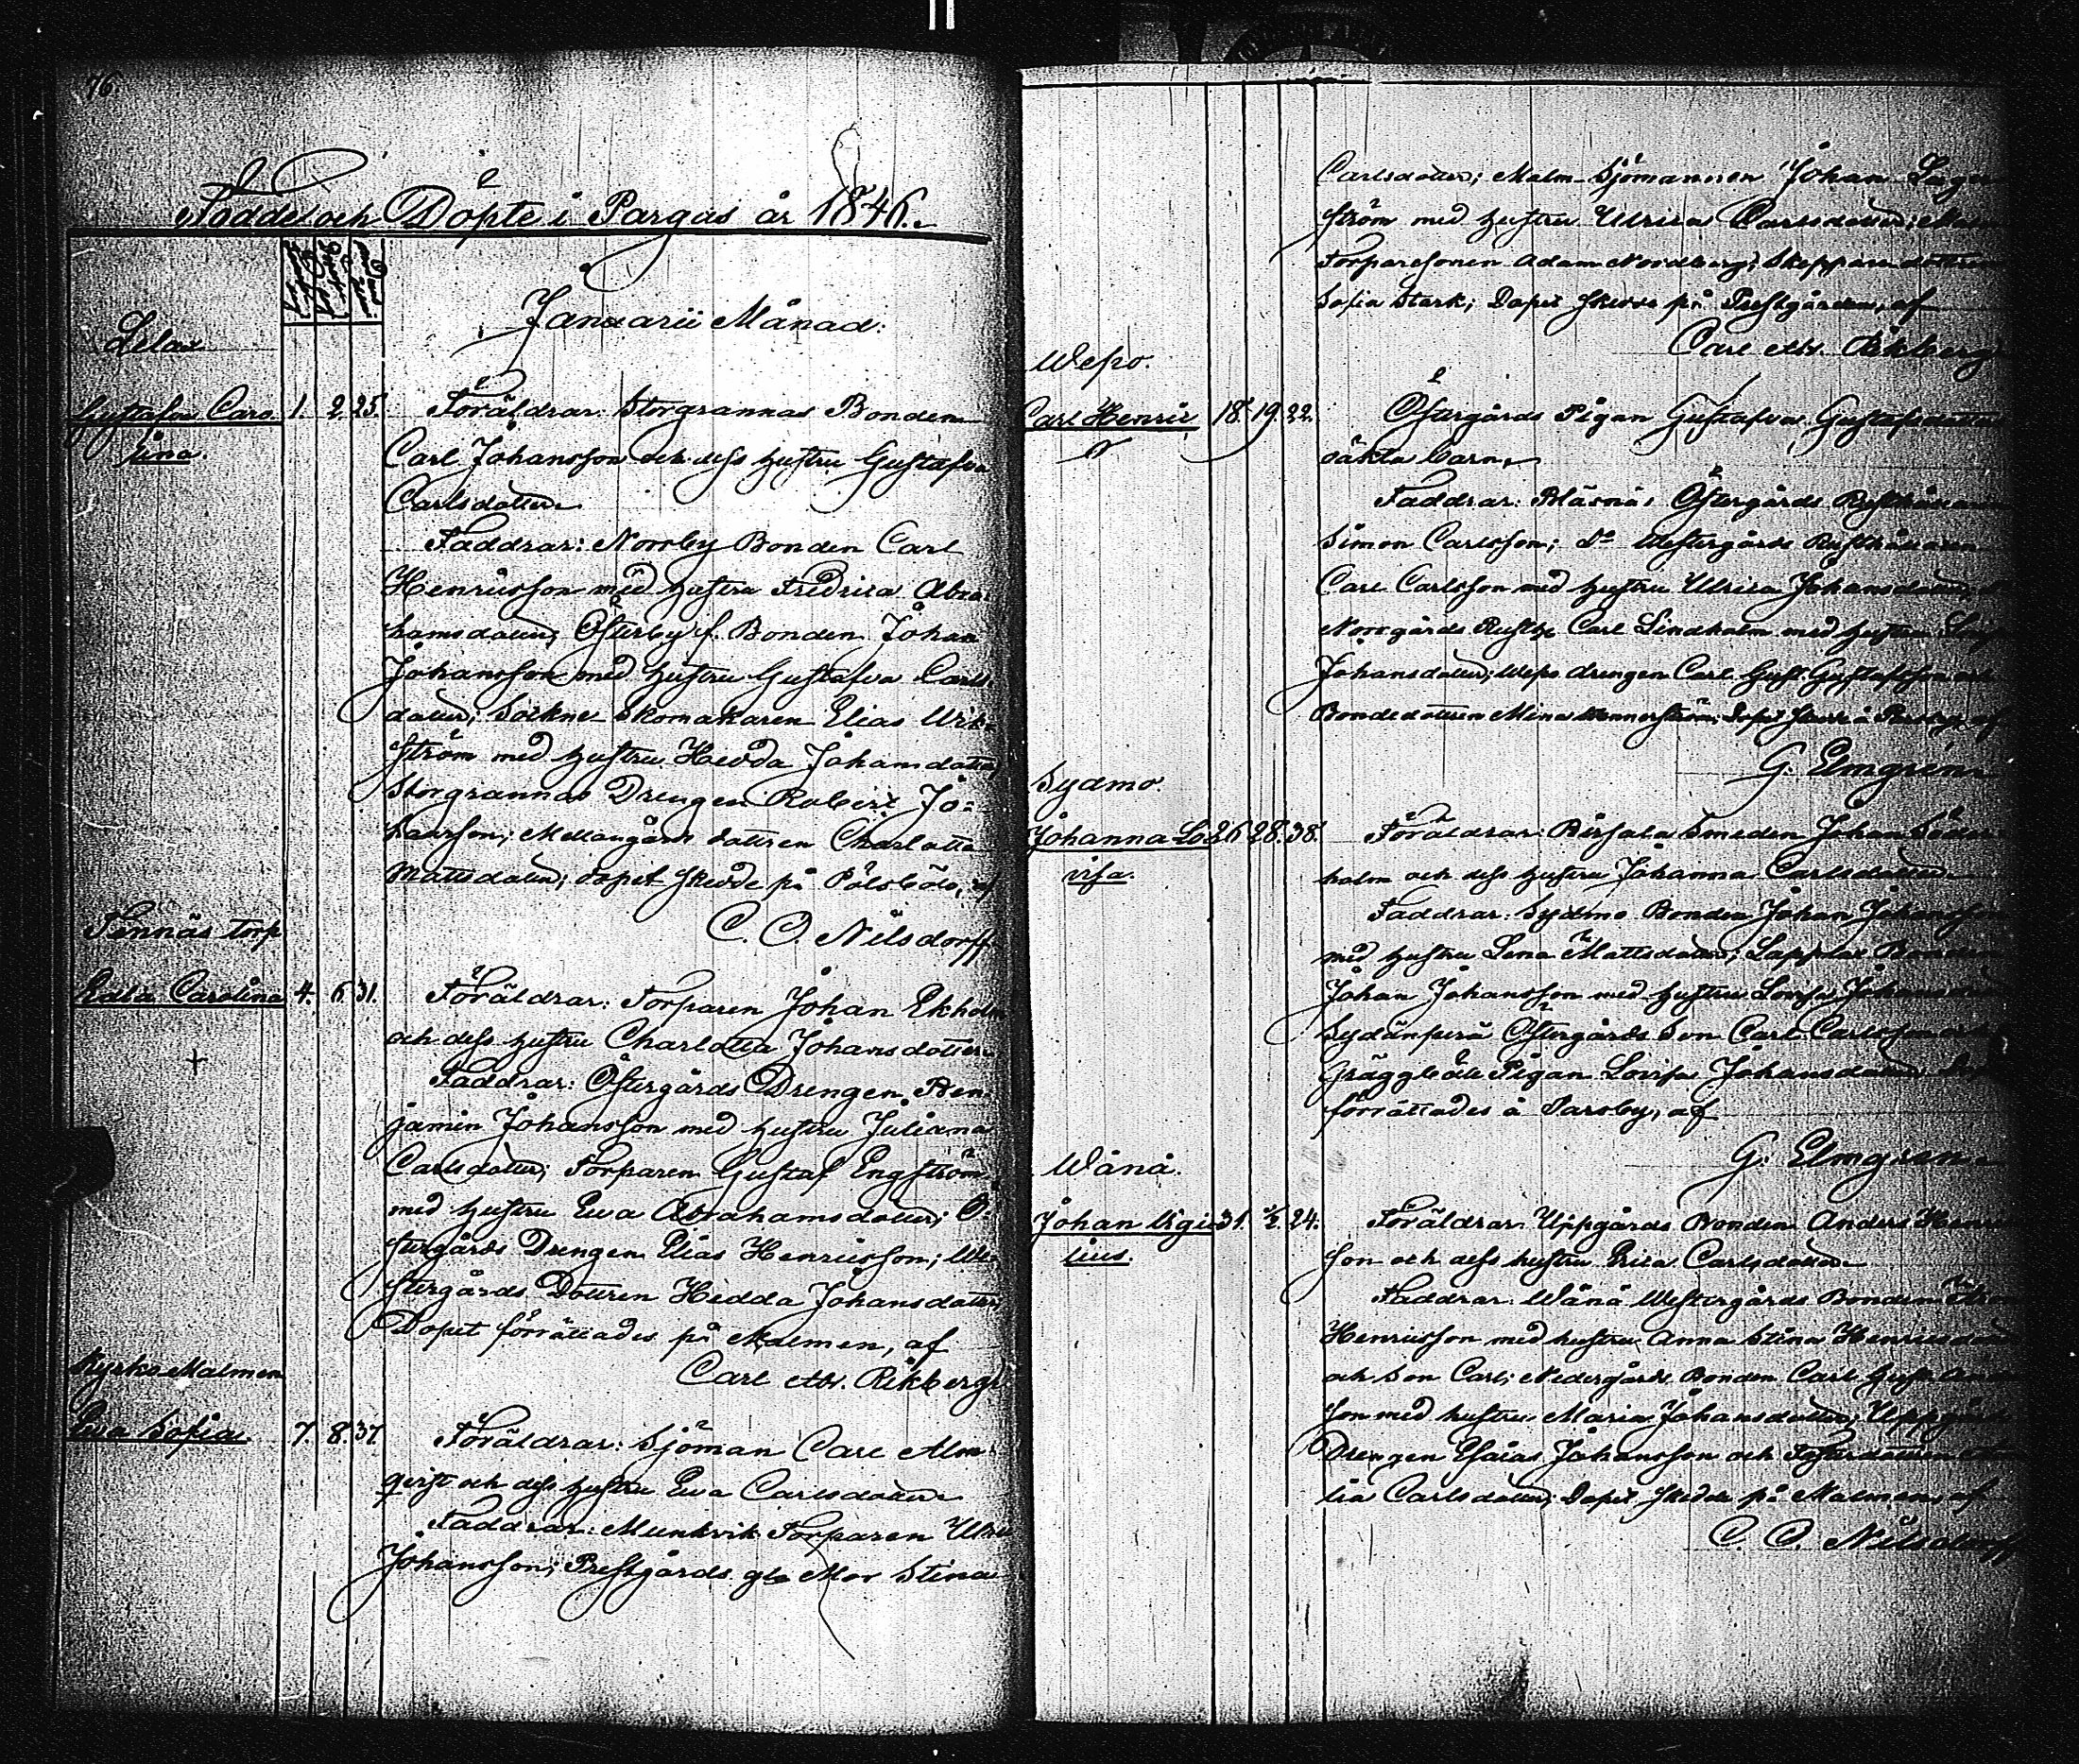 76
Födde och Döpte i Pargas år 1846.
Januarii Månad.
Lelax
Gustafva Caro- 1. 2. 25. Föräldrar: Storgrannas Bonden
lina. Carl Johansson och dess hustru Gustafva
Carlsdotter.
Faddrar: Norrby Bonden Carl
Henricsson med hustru Fredrica Abra-
hamsdotter; Österby f. Bonden Johan
Johansson med hustru Gustafva Carls-
dotter; Sockne Skomakaren Elias Wik-
ström med hustru Hedda Johansdotter;
Storgrannas Drengen Robert Jo-
hansson; Mellangårds dottren Charlotta
Mattsdotter; dopet skedde på Pölsböle, af
C. O. Nilsdorff
Tennäs torp
Edla Carolina 4. 6. 31. Föräldrar: Torparen Johan Ekholm
och dess hustru Charlotta Johansdotter.
† Faddrar: Östergårds Drengen Ben-
jamin Johansson med hustru Juliana
Carlsdotter; Torparen Gustaf Engström
med hustru Eva Abrahamsdotter; Ö-
stergårds Drengen Elias Henricsson; We-
stergårds Dottren Hedda Johansdotter;
Dopet förrättades på Malmen, af
Carl Rikberg
Kyrko Malmen
Eva Sofia 7. 8. 37. Föräldrar: Sjöman Carl Alm-
qvist och dess hustru Eva Carlsdotter.
Faddrar: Munkvik Torparen
Johansson; Prestgårds gla Mor Stina
Carlsdotter; Malm-Sjömannen Johan Lager-
ström med hustru Ulrica Carlsdotter;
Torparesonen Adam Nordberg; Skeppare dottren
Sofia Stark; Dopet skedde på Prestgården, af
Carl Rikberg
Wepo.
Carl Henric 18. 19. 22. Östergårds Pigan Gustafva Gustafsdotters
oäkta barn.
Faddrar: Bläsnäs Östergårds Rusthållaren
Simon Carlsson; Do Westergårds Rusthållaren
Carl Carlsson med hustru Ulrica Johansdotter;
Norrgårds Rusth. Carl Lindholm med hustru
Johansdotter; Wepo drengen Carl Gust. Gustafsson och
Bondedottren Mina Wennerström; Dopet skedde å af
G. Elmgren
Sydmo.
Johanna Lo- 26. 28. 38. Föräldrar: Smeden Johan Söder-
visa. holm och dess hustru Johanna Carlsdotter.
Faddrar: Sydmo Bonden Johan Johansson
med hustru Lena Mattsdotter; Lapplax Bonden
Johan Johansson med hustru Lovisa Johansdotter
Sydänperä Östergårds Son Carl Carlsson och
Gräggböle Pigan Lovisa Johansdotter
förrättades å Parsby, af
G. Elmgren.
Wånå.
Johan Vigi- 31. 1/2. 24. Föräldrar: Uppgårds Bonden Anders Henrics-
lius. son och dess hustru Erica Carlsdotter.
Faddrar: Wånå Westergårds Bonden
Henricsson med hustru Anna Stina Henricsdotter
och Son Carl; Nedergårds Bonden Carl Gust.
son med hustru Maria Johansdotter; Uppgårds
Drengen Esaias Johansson och
lia Carlsdotter; Dopet skedde på Malmen, af
C. O. Nilsdorff